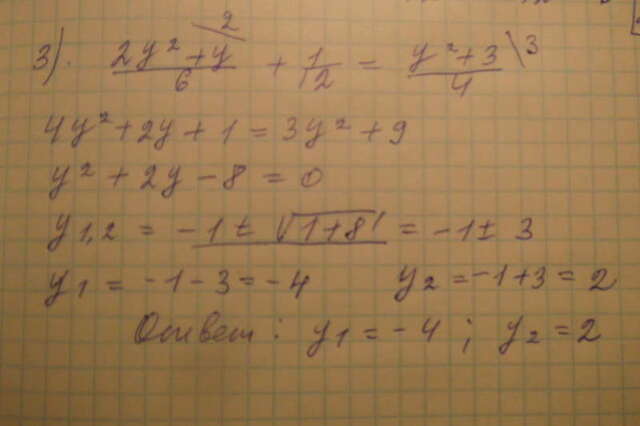 3). (2y² + y)/6 \2 + 1/12 = (y² + 3)/4 \3
4y² + 2y + 1 = 3y² + 9
y² + 2y - 8 = 0
y1,2 = -1 ± √1+8 = -1 ± 3
y1 = -1 - 3 = -4 y2 = -1 + 3 = 2
Ответ: y1 = -4 ; y2 = 2